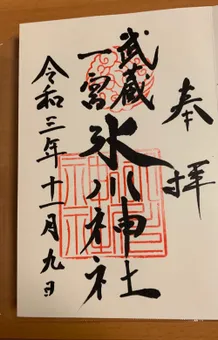 奉拝
武蔵
一宮
氷川神社
令和三年十一月九日